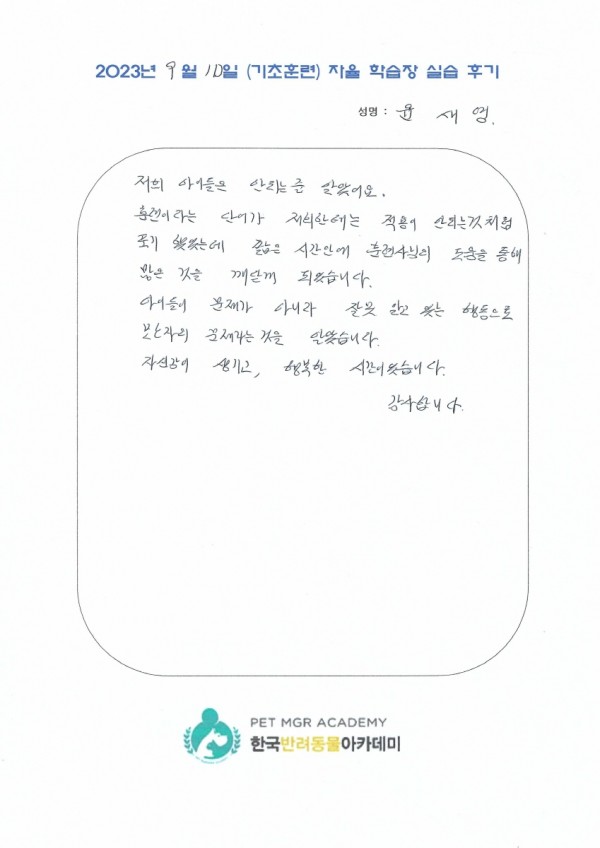 2023년 9월 10일 (기초훈련) 자율 학습장 실습 후기
성명 : 윤 새 영.
저희 아이들은 안되는 줄 알았어요.
훈련이라는 단어가 저희한에는 적용이 안되는것처럼
포기 했었는데 짧은 시간안에 훈련사님의 도움을 통해
많은 것을 깨닫게 되었습니다.
아이들이 문제가 아니라 잘못 알고 있는 행동으로
보호자의 문제라는것을 알았습니다.
자신감이 생기고, 행복한 시간이었습니다.
감사합니다.
PET MGR ACADEMY
한국반려동물아카데미